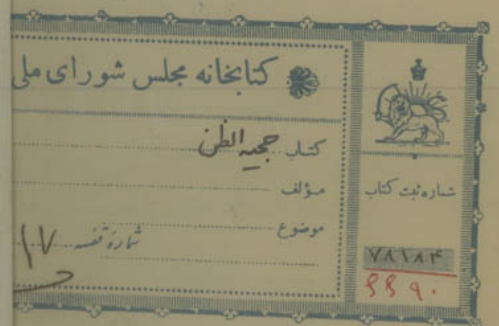 کتابخانه مجلس شورای ملی
کتاب حجیه الظن
مؤلف
موضوع
شماره قفسه ۱۷
شماره ثبت کتاب
۷۸۱۸۴